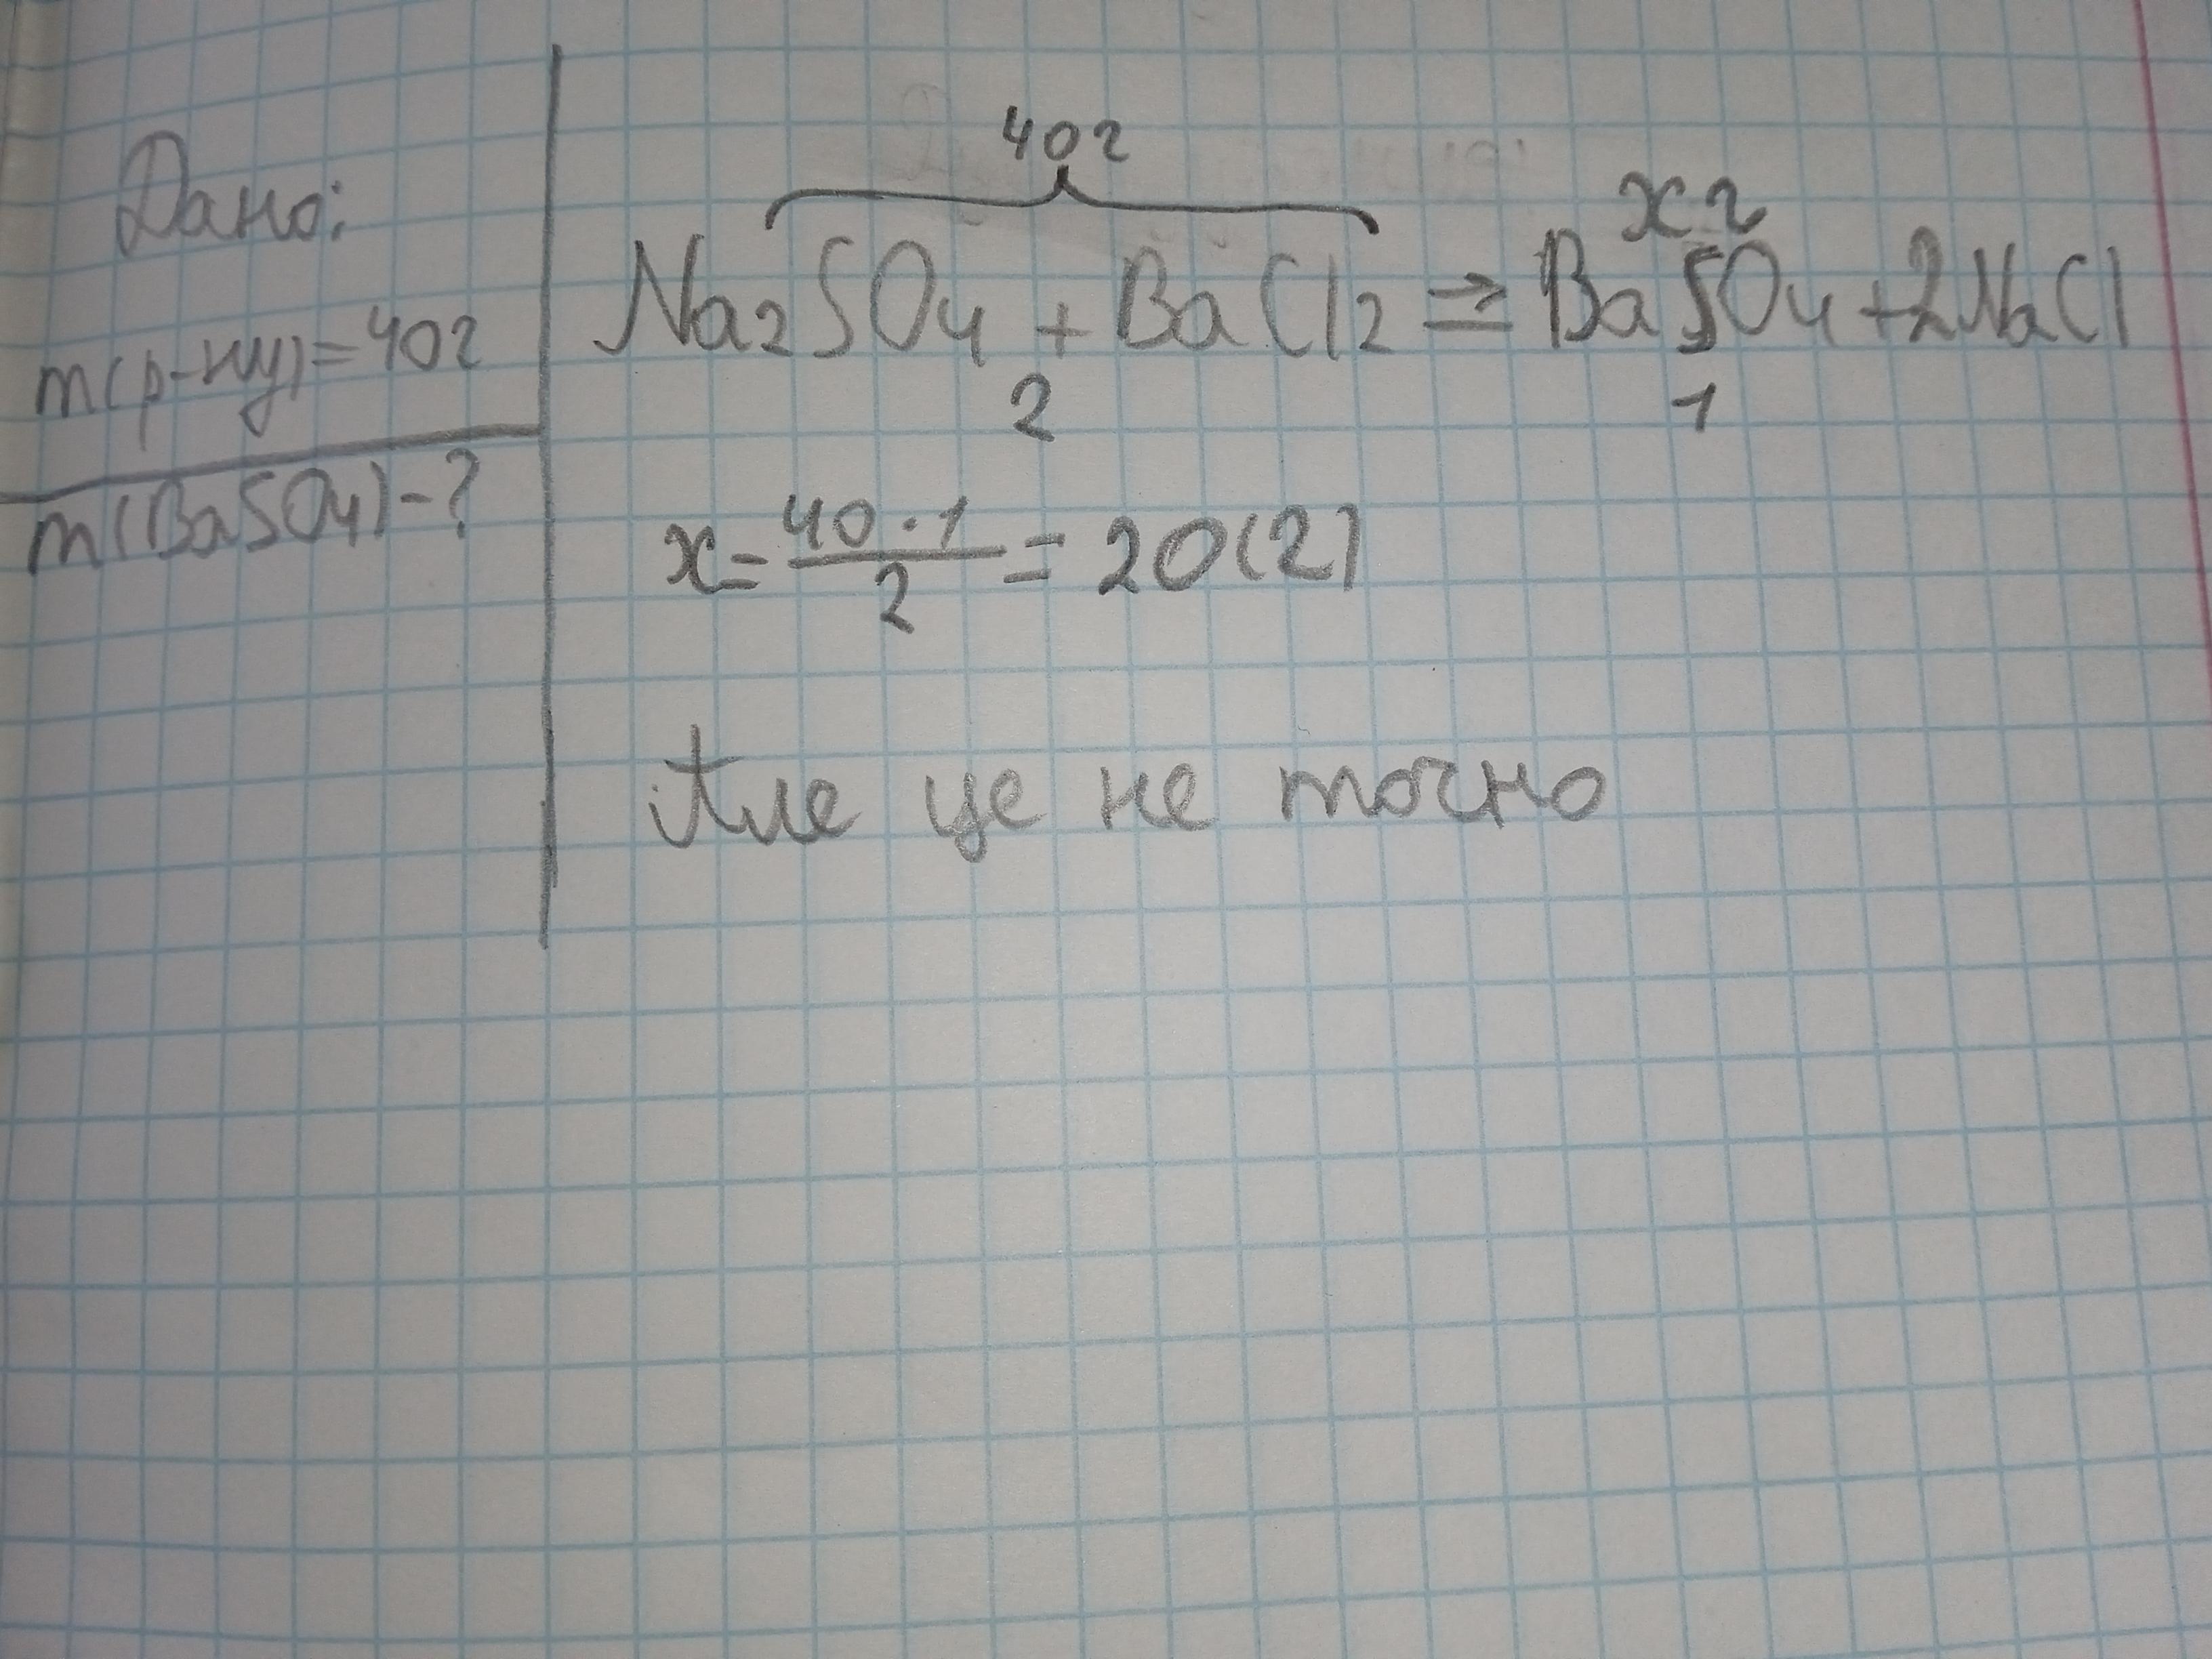 Дано:
m(р-ну)=40г
m(BaSO4)-?
40г
xг
Na2SO4 + BaCl2 ⇒ BaSO4+2NaCl
2 1
x= 40·1/2 = 20(г)
Але це не точно